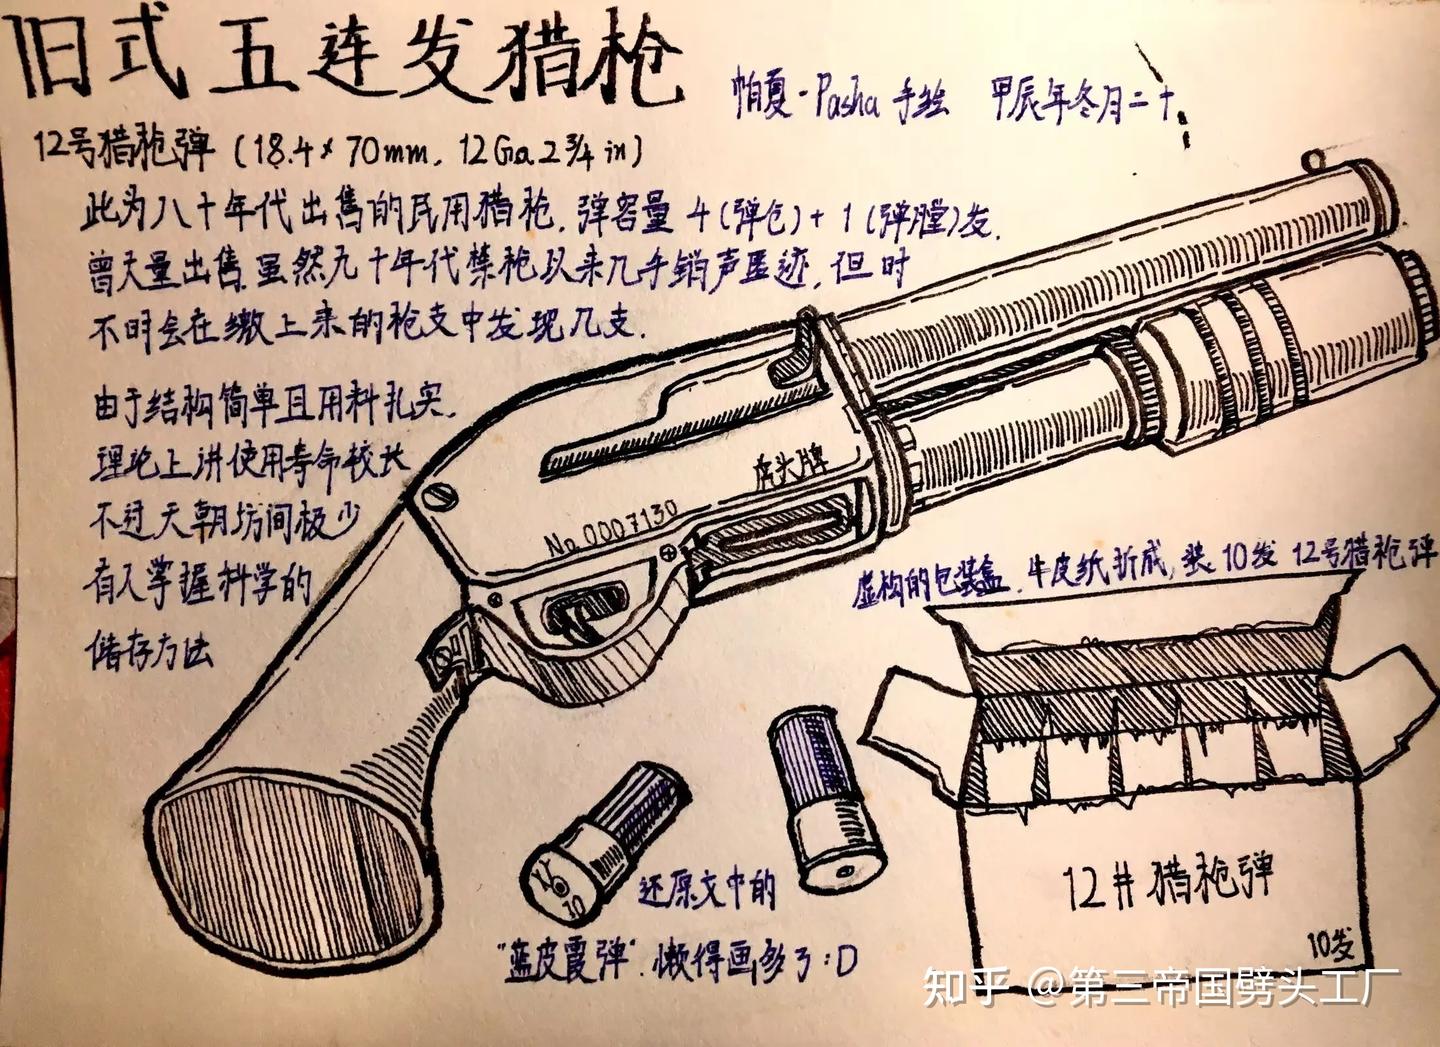 旧式五连发猎枪
帕夏-Pasha 手绘 甲辰年冬月二十
12号猎枪弹 (18.4×70mm, 12Ga 2 3/4 in)
此为八十年代出售的民用猎枪,弹容量 4(弹仓)+1(弹膛)发.
曾大量出售,虽然九十年代禁枪以来几乎销声匿迹,但时
不时会在缴上来的枪支中发现几支.
由于结构简单且用料扎实.
理论上讲使用寿命较长
不过天朝坊间极少
有人掌握科学的
储存方法
虎头牌
No 0007130
虚构的包装盒.牛皮纸折成,装10发 12号猎枪弹
12# 猎枪弹
10发
还原文中的
“蓝皮霞弹”.懒得画多了:D
知乎 @第三帝国劈头工厂